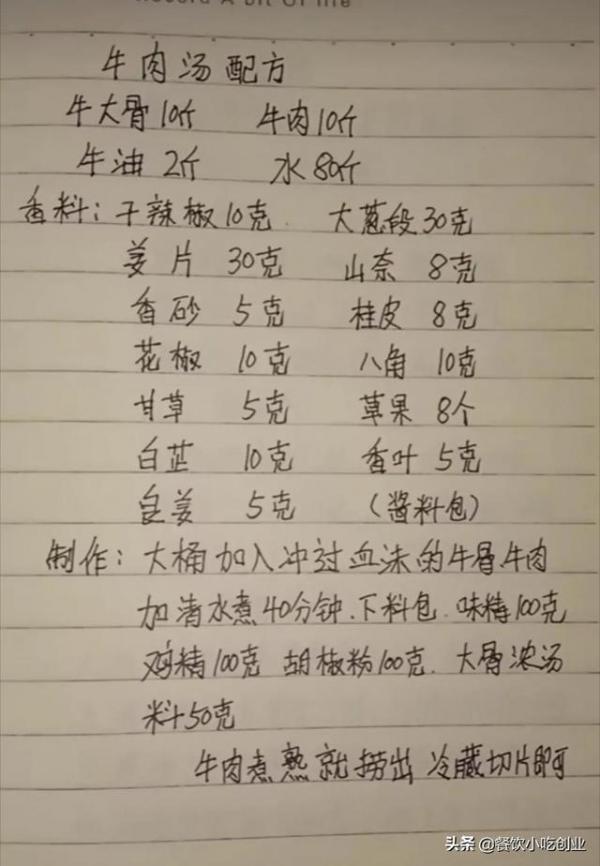 Record A bit Of life
牛肉汤配方
牛大骨10斤 牛肉10斤
牛油 2斤 水 80斤
香料：干辣椒10克 大葱段30克
姜片 30克 山奈 8克
香砂 5克 桂皮 8克
花椒 10克 八角 10克
甘草 5克 草果 8个
白芷 10克 香叶 5克
良姜 5克 （酱料包）
制作：大桶加入冲过血沫的牛骨、牛肉
加清水煮40分钟、下料包、味精100克
鸡精100克 胡椒粉100克、大骨浓汤
料50克
牛肉煮熟就捞出 冷藏切片即可
头条 @餐饮小吃创业